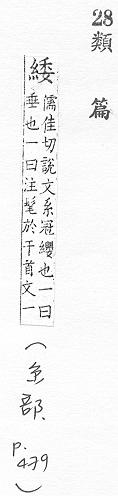 28 類篇
緌 儒佳切說文系冠纓也一曰
垂也一曰注髦於干首文一
(糸部 p.479)